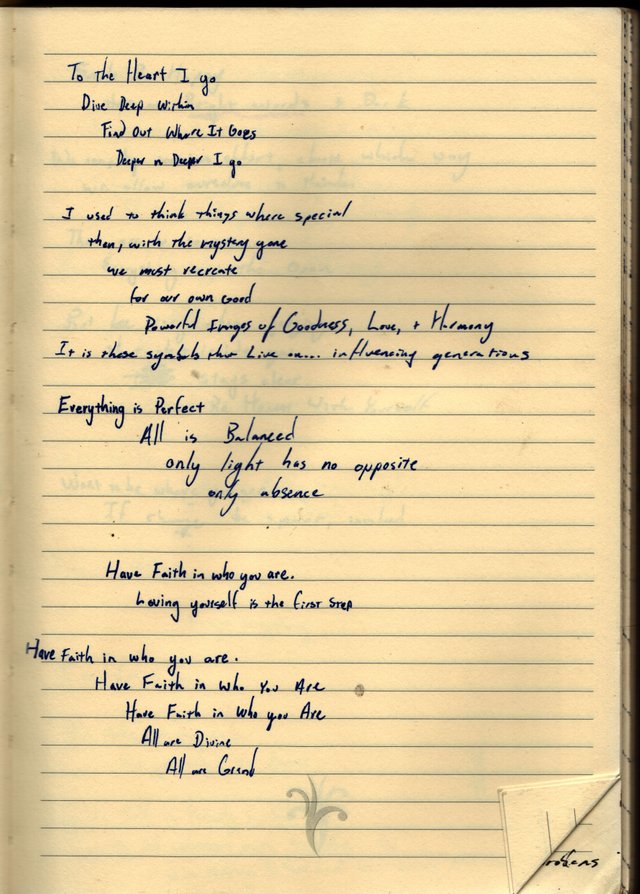 To The Heart I go
Dive Deep Within
Find Out Where It Goes
Deeper n Deeper I go
I used to think things where special
then, with the mystery gone
we must recreate
for our own Good
Powerful Images of Goodness, Love, + Harmony
It is those symbols that Live on... influencing generations
Everything is Perfect
All is Balanced
only light has no opposite
only absence
Have Faith in who you are.
Loving yourself is the first step
Have Faith in who you are.
Have Faith in Who You Are
Have Faith in Who you Are
All are Divine
All are Grand